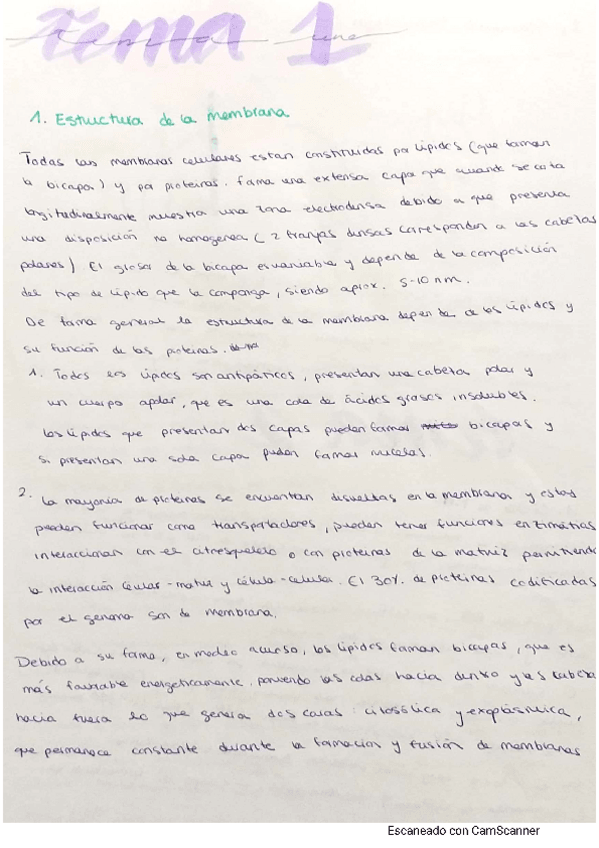 Tema 1
Tema uno
1. Estructura de la membrana
Todas las membranas celulares estan constituidas por lípidos (que forman
la bicapa) y por proteinas. Forma una extensa capa que cuando se corta
longitudinalmente muestra una zona electrodensa debido a que presenta
una disposición no homogenea (2 franjas densas corresponden a las cabezas
polares) El grosor de la bicapa es variable y depende de la composición
del tipo de lípido que la componga, siendo aprox. 5-10 nm.
De forma general la estructura de la membrana depende de los lípidos y
su función de las proteinas.
1. Todos los lípidos son antipáticos, presentan una cabeza polar y
un cuerpo apolar, que es una cola de ácidos grasos insolubles.
Los lípidos que presentan dos capas pueden formar bicapas y
si presentan una sola capa pueden formar micelas.
2. La mayoria de proteinas se encuentran disueltas en la membrana y estas
pueden funcionar como transportadores, pueden tener funciones enzimáticas
interaccionar con el citoesqueleto o con proteinas de la matriz permitiendo
la interacción célular-matriz y célula-celula. El 30% de proteinas codificadas
por el genoma son de membrana.
Debido a su forma, en medio acuoso, los lípidos forman bicapas, que es
más favorable energeticamente, poniendo las colas hacia dentro y las cabezas
hacia fuera lo que genera dos caras: citosólica y exoplásmica,
que permanece constante durante la formacion y fusión de membranas
Escaneado con CamScanner